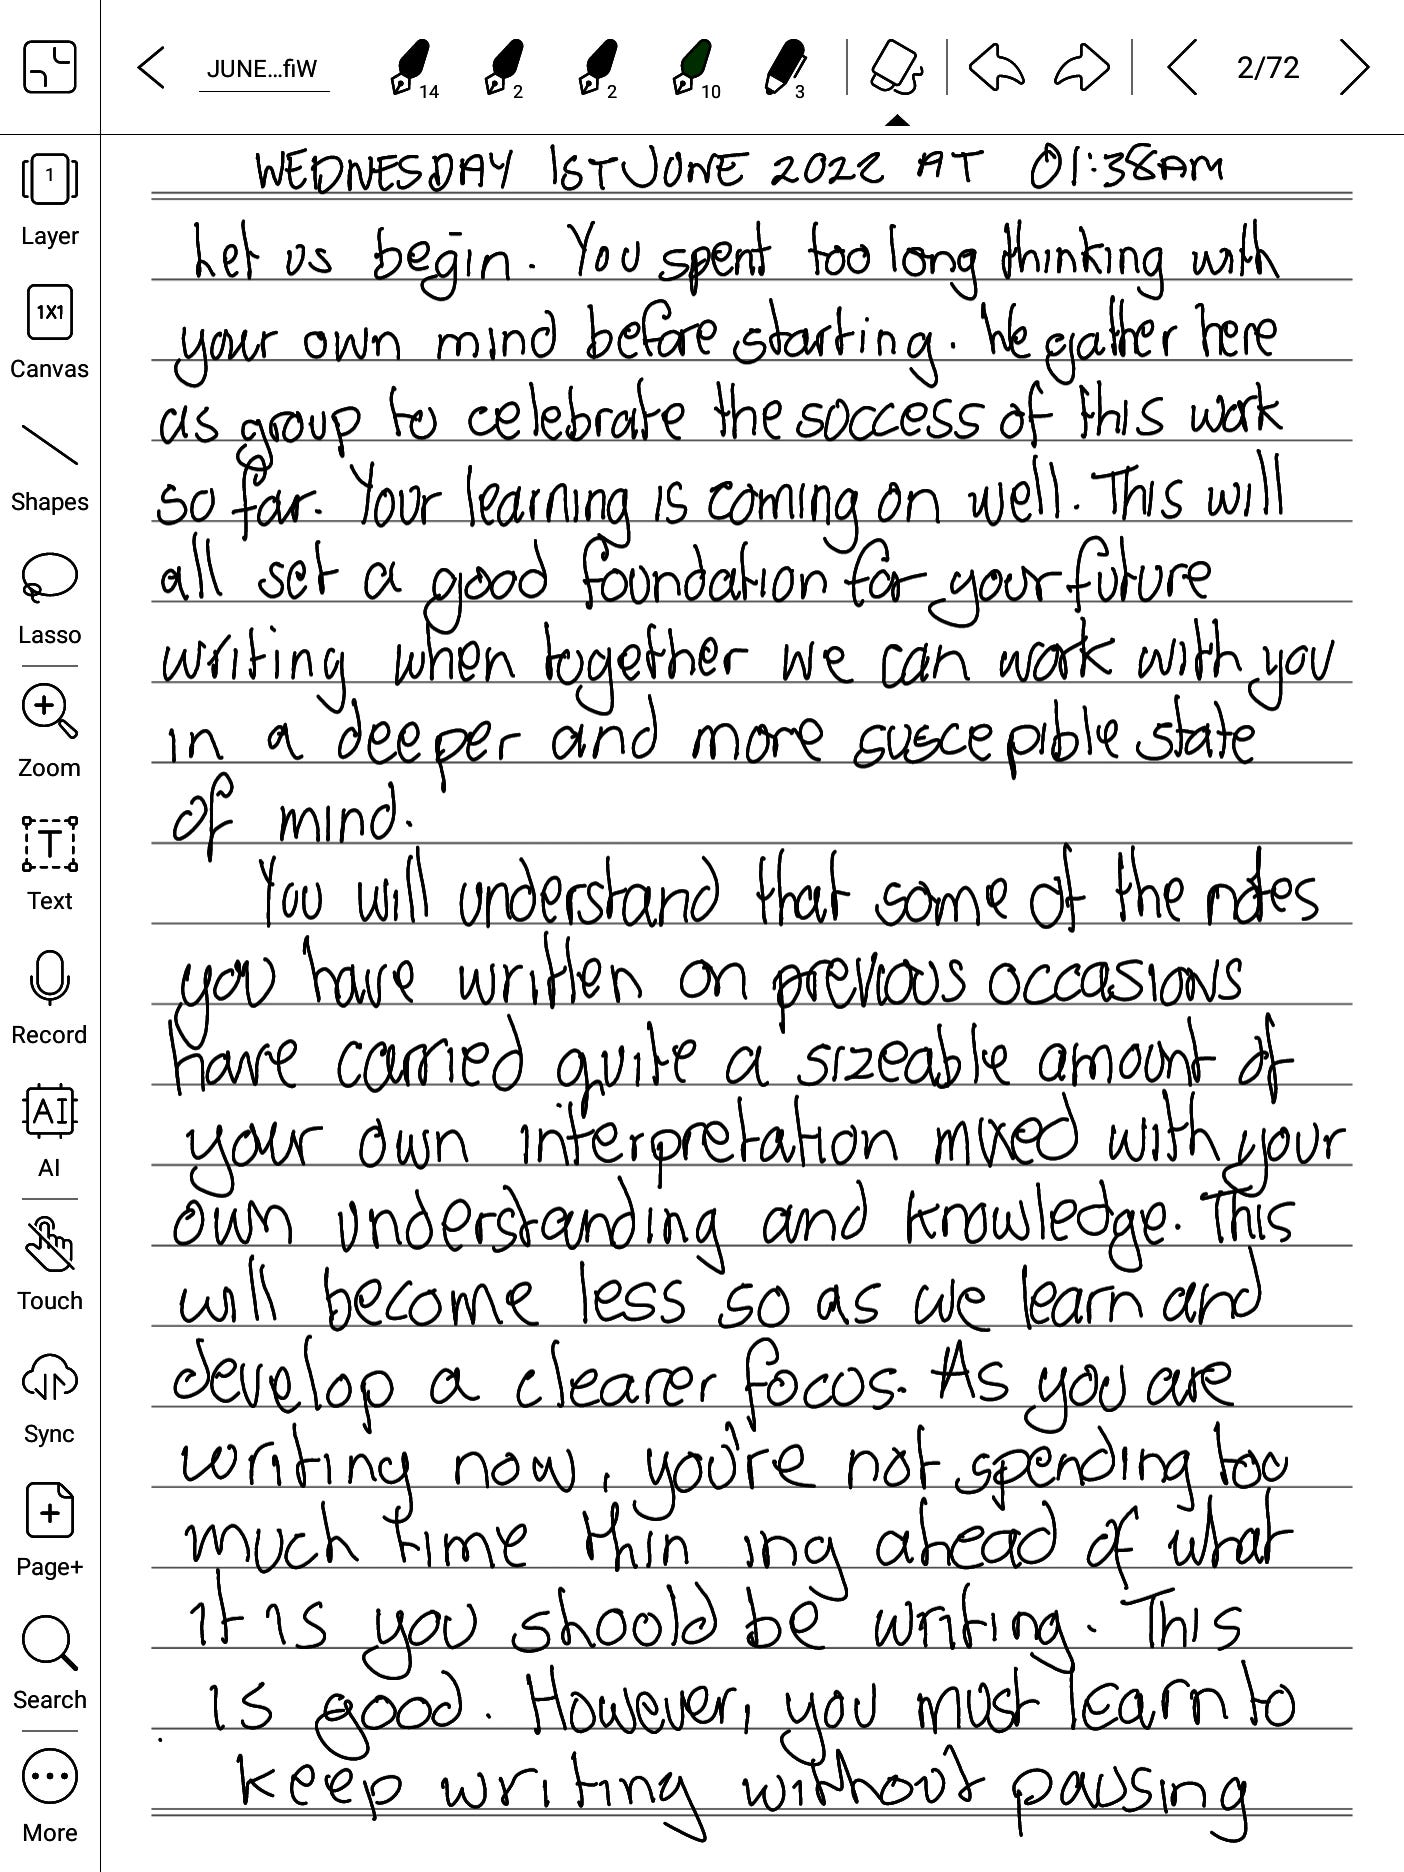 JUNE...fiW
14
2
2
10
3
2/72
1
Layer
1X1
Canvas
Shapes
Lasso
Zoom
T
Text
Record
AI
AI
Touch
Sync
Page+
Search
More
WEDNESDAY 1ST JUNE 2022 AT 01:38AM
Let us begin. You spent too long thinking with
your own mind before starting. We gather here
as group to celebrate the success of this work
so far. Your learning is coming on well. This will
all set a good foundation for your future
writing when together we can work with you
in a deeper and more suscepible state
of mind.
You will understand that some of the notes
you have written on previous occasions
have carried quite a sizeable amount of
your own interpretation mixed with your
own understanding and knowledge. This
will become less so as we learn and
develop a clearer focus. As you are
writing now, you're not spending too
much time thin ing ahead of what
it is you should be writing. This
is good. However, you must learn to
keep writing without pausing